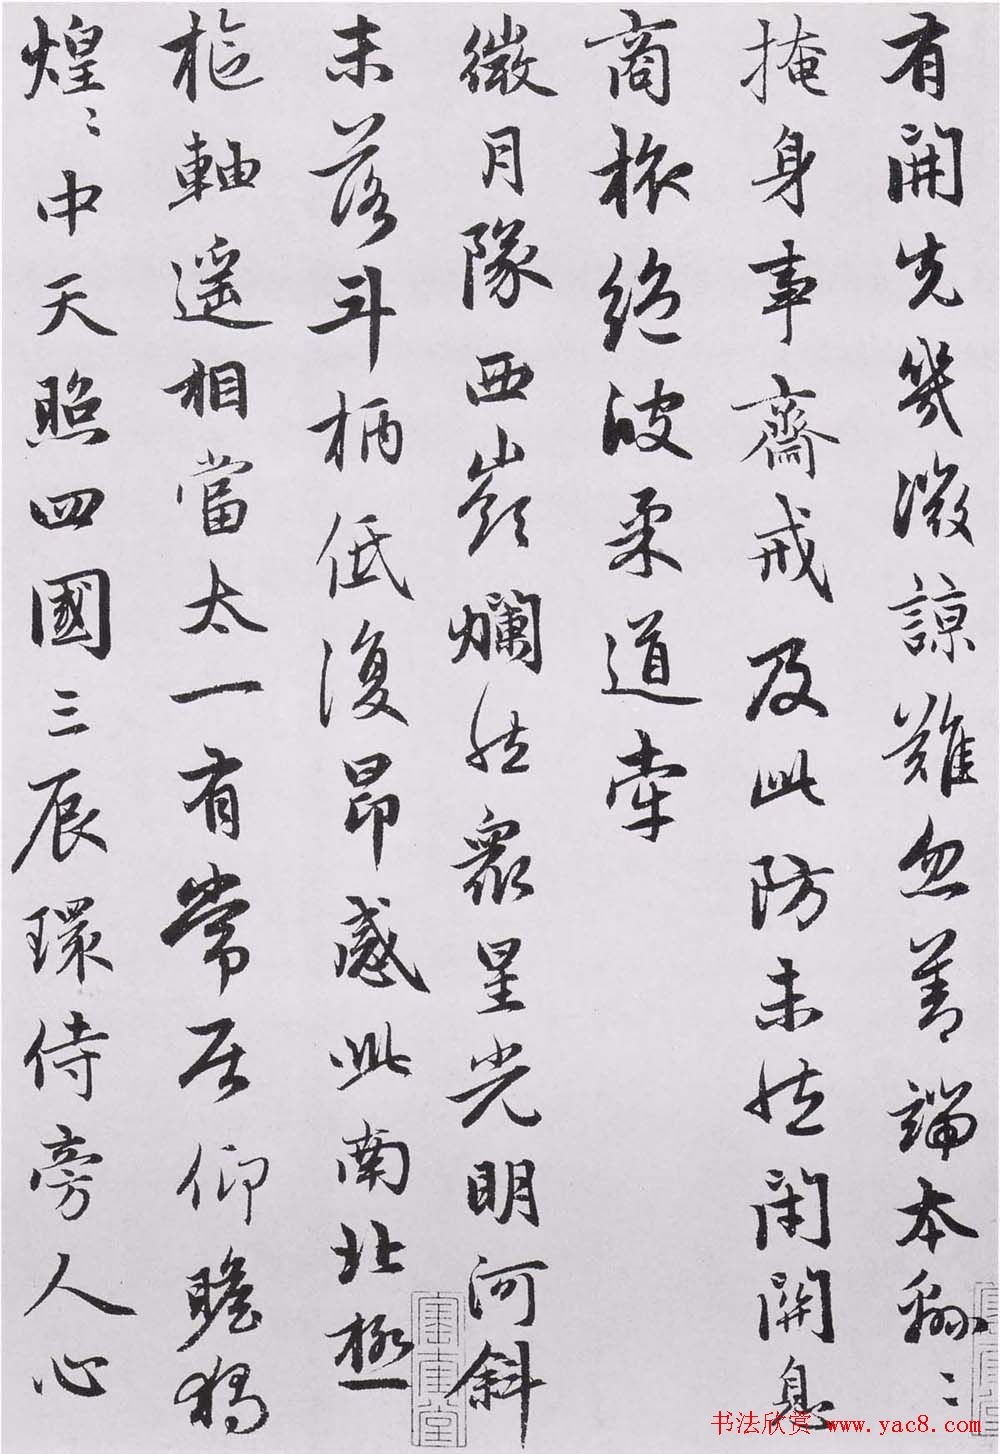 有開先幾微諒難忽善端本綿〻
掩身事齋戒及此防未然閉關息
商旅絕彼柔道牽
微月墮西嶺爛然眾星光明河斜
未落斗柄低復昂感此南北極
樞軸遥相當太一有常居仰瞻獨
煌〻中天照四國三辰環侍旁人心
书法欣赏 www.yac8.com